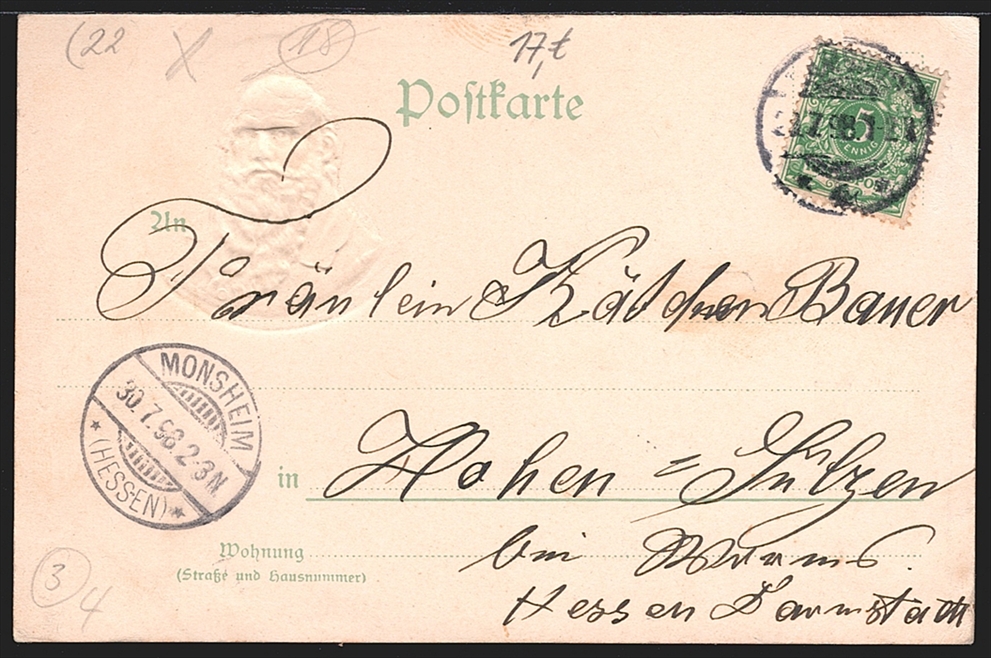 (22 X 18 17,t
Postkarte
5
PFENNIG
An
Fräulein Kätchen Bauer
MONSHEIM
30.7.98 2-3N
(HESSEN)
in Hohen=Sülzen
Wohnung bei Worms.
(Straße und Hausnummer)
Hessen Darmstadt
3 4